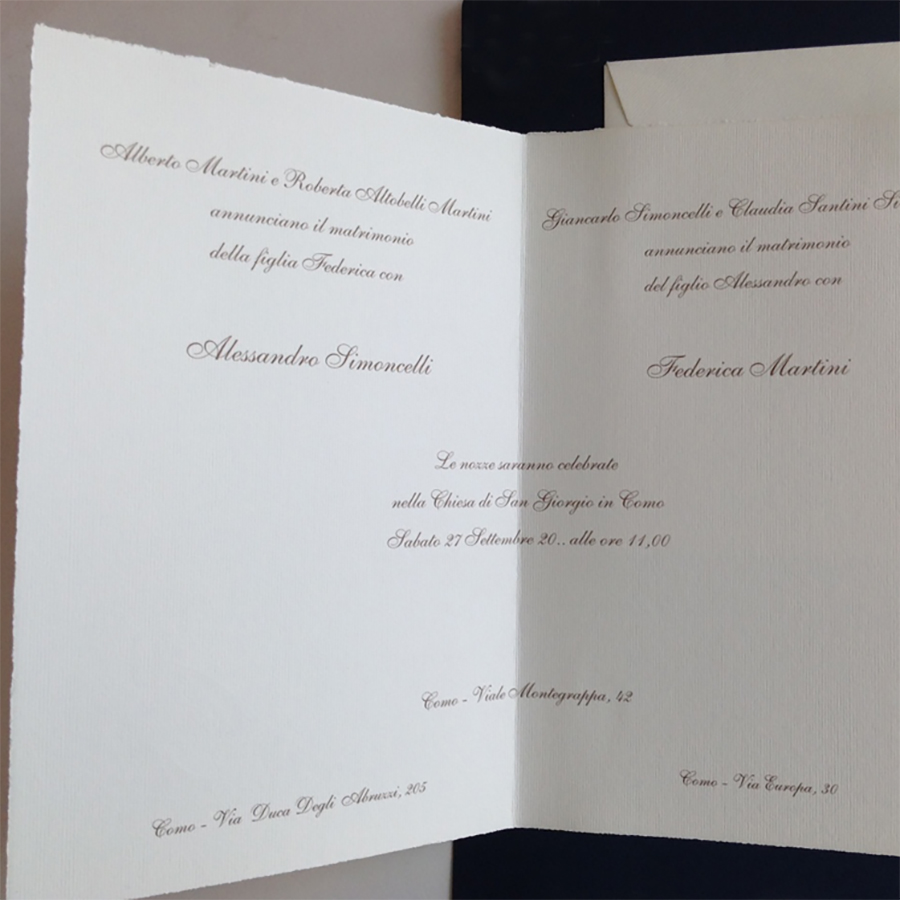 Alberto Martini e Roberta Altobelli Martini
annunciano il matrimonio
della figlia Federica con
Alessandro Simoncelli
Giancarlo Simoncelli e Claudia Santini Si
annunciano il matrimonio
del figlio Alessandro con
Federica Martini
Le nozze saranno celebrate
nella Chiesa di San Giorgio in Como
Sabato 27 Settembre 20.. alle ore 11,00
Como - Viale Montegrappa, 42
Como - Via Duca Degli Abruzzi, 205
Como - Via Europa, 30